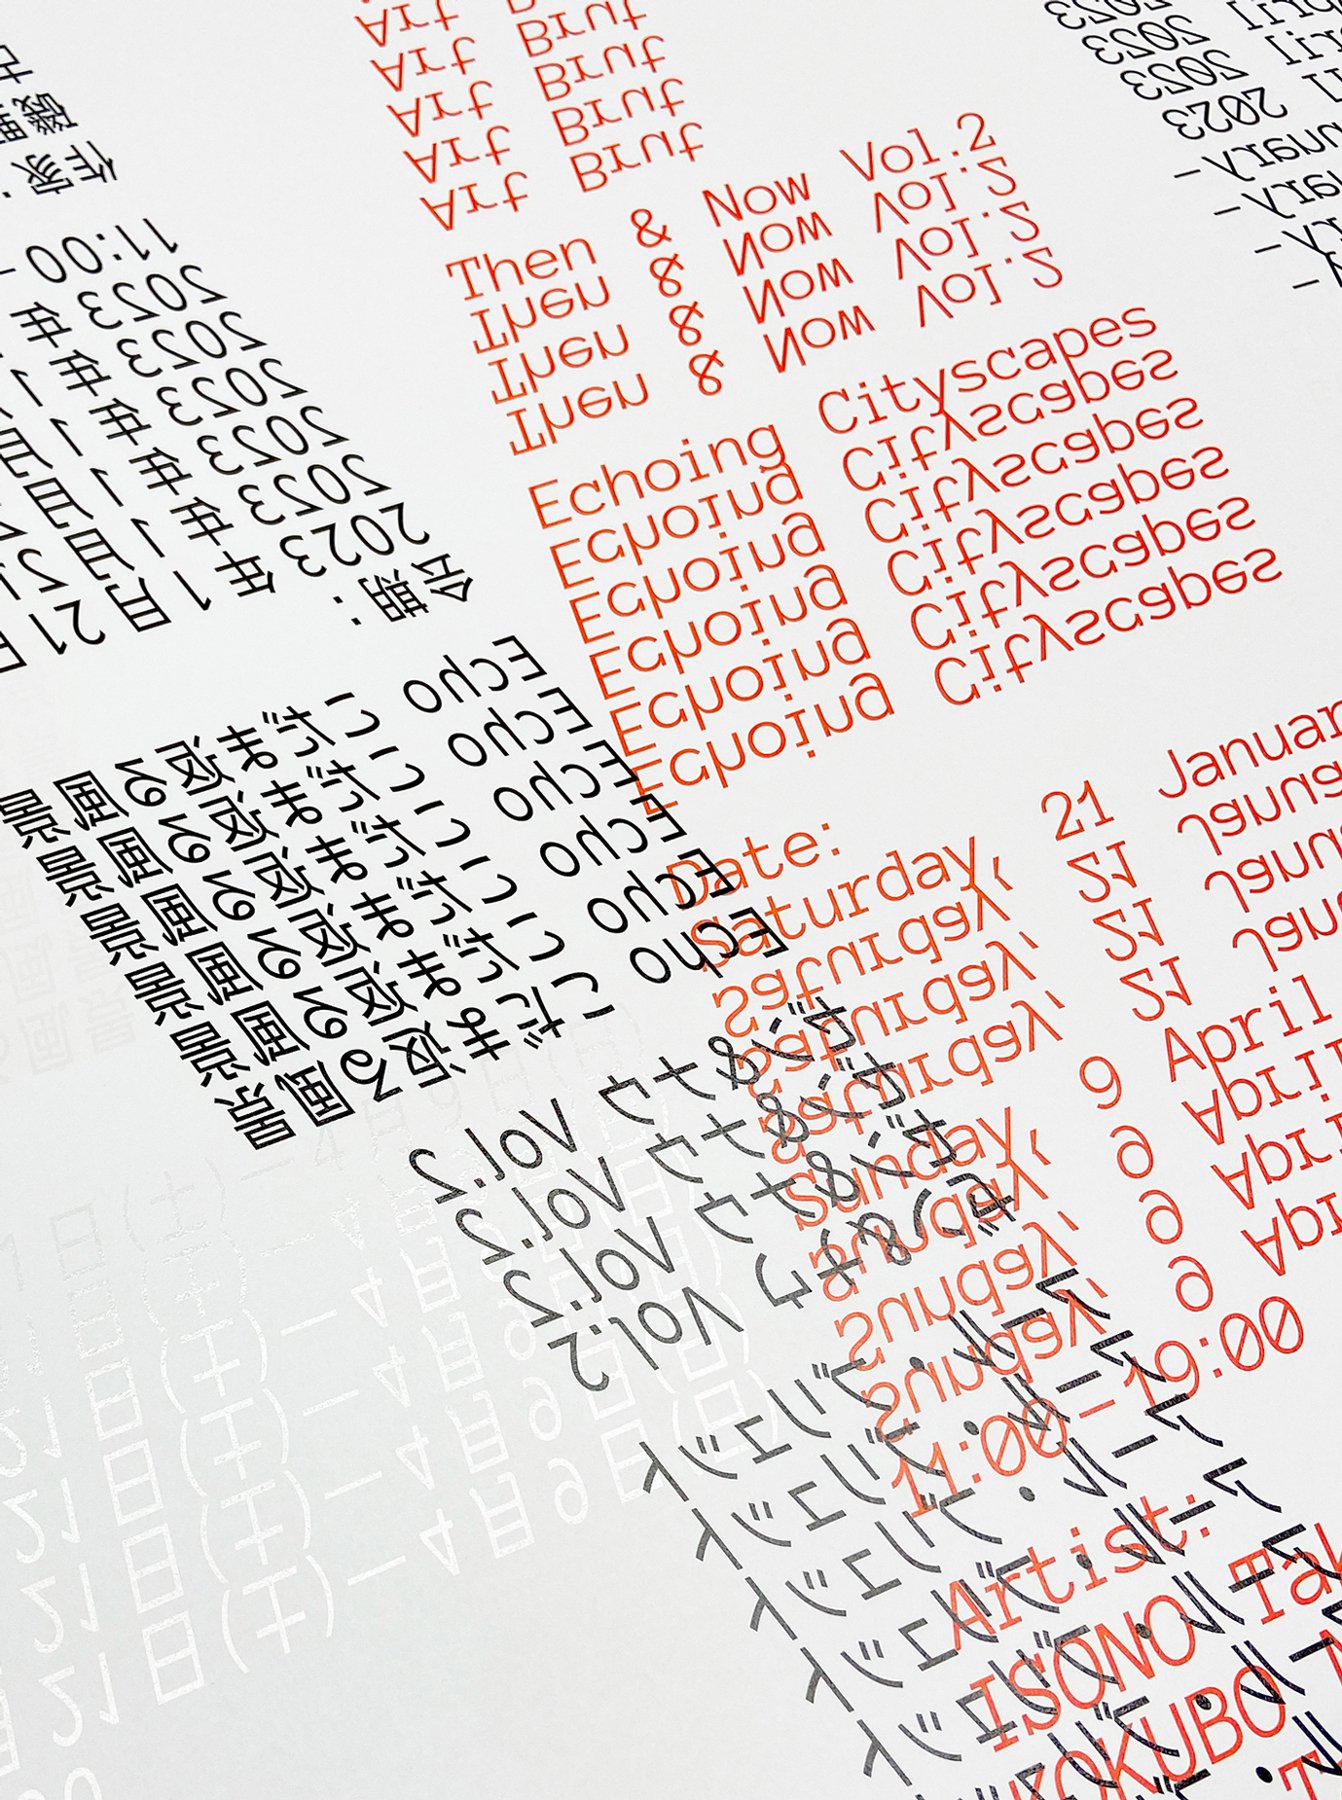 Art Brut
Art Brut
Art Brut
Art Brut
Art Brut
Then & Now Vol.2
Then & Now Vol.2
Then & Now Vol.2
Then & Now Vol.2
Echoing Cityscapes
Echoing Cityscapes
Echoing Cityscapes
Echoing Cityscapes
Echoing Cityscapes
Echoing Cityscapes
Date:
Saturday, 21 Januar
Saturday, 21 Janua
Saturday, 21 Janu
Saturday, 21 Jan
Sunday, 9 April
Sunday, 9 April
Sunday, 9 Apri
Sunday, 9 Apr
11:00–19:00
Artist:
ISONO Tak
KOKUBO
2023
2023
2023
2023
作家:
11:00 –
2023年
2023年1
2023年1月
2023年1月2
2023年1月21
会期:
Echo こだま返る風景
Echo こだま返る風景
Echo こだま返る風景
Echo こだま返る風景
Echo こだま返る風景
Echo こだま返る風景
ゼン&ナウ Vol.2
ゼン&ナウ Vol.2
ゼン&ナウ Vol.2
ゼン&ナウ Vol.2
アール・ブリュット
アール・ブリュット
アール・ブリュット
アール・ブリュット
アール・ブリュット
21日(土)–4月9日(日)
21日(土)–4月9日(日)
21日(土)–4月9日(日)
21日(土)–4月9日(日)